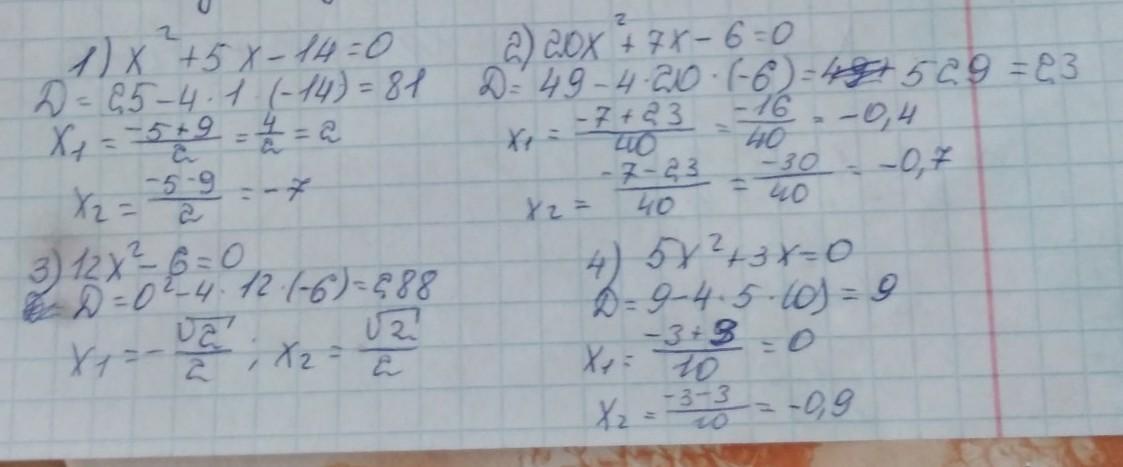 1) x² + 5x - 14 = 0
D = 25 - 4 · 1 · (-14) = 81
x₁ = (-5+9)/2 = 4/2 = 2
x₂ = (-5-9)/2 = -7
2) 20x² + 7x - 6 = 0
D = 49 - 4 · 20 · (-6) = 529 = 23
x₁ = (-7+23)/40 = -16/40 = -0,4
x₂ = (-7-23)/40 = -30/40 = -0,7
3) 12x² - 6 = 0
D = 0² - 4 · 12 · (-6) = 288
x₁ = -√2/2 ; x₂ = √2/2
4) 5x² + 3x = 0
D = 9 - 4 · 5 · (0) = 9
x₁ = (-3+3)/10 = 0
x₂ = (-3-3)/10 = -0,9